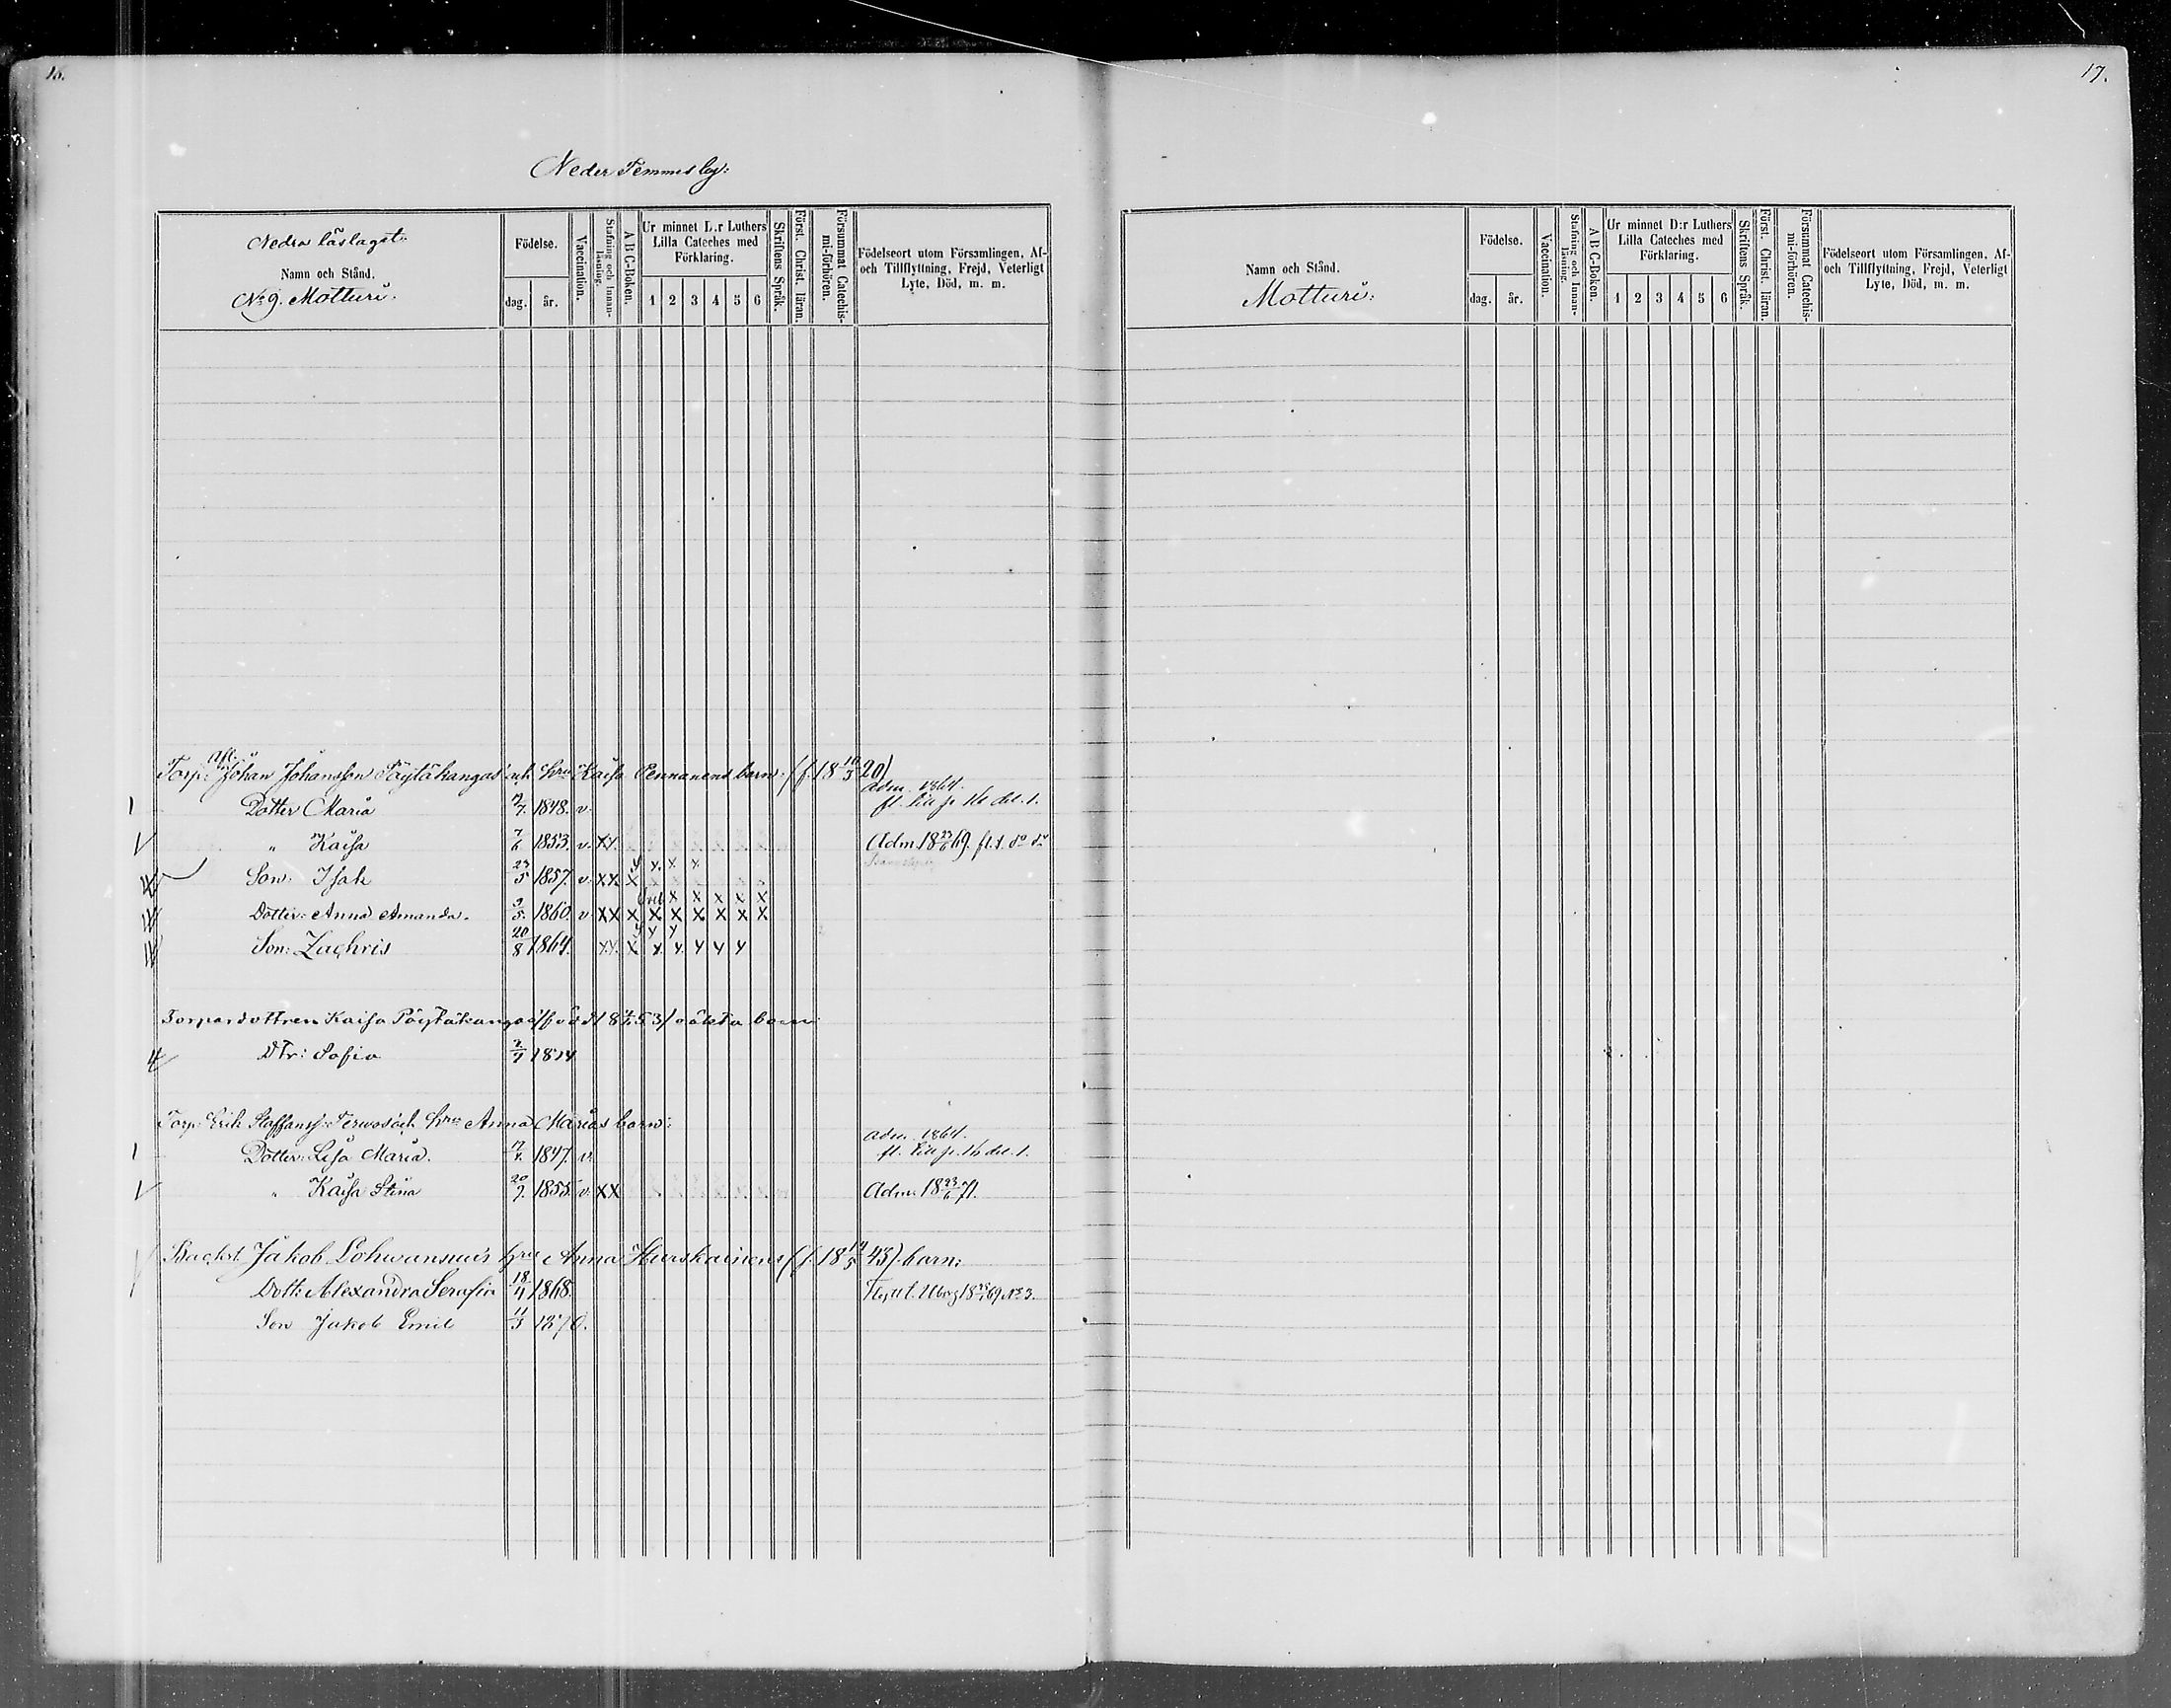 16.
Neder Temmes by:
Nedra läslaget:
Namn och Stånd.
No 9. Motturi.
Födelse.
dag.
år.
Vaccination.
Stafning och Innan-
läsning.
A B C-Boken.
Ur minnet D:r Luthers
Lilla Cateches med
Förklaring.
1 2 3 4 5 6
Skriftens Språk.
Först. Christ. läran.
Försummat Catechis-
mi-förhören.
Födelseort utom Församlingen, Af-
och Tillflyttning, Frejd, Veterligt
Lyte, Död, m. m.
Torp: afl. Johan Johansson Pöytäkangas' och Hru Kaisa Pennanens barn: (f. 18 16/3 20)
Dotter Maria 17/7. 1848. v. adm. 1864. fl. till p. 16 del. 1.
" Kaisa 7/6 1853. v. XX. Adm. 18 27/6 69. fl. t. do do
Son: Isak 23/5 1857. v. XX. X y y. x x
Dotter: Anna Amanda. 9/5. 1860. v. XX X X X X X X X x x x x x
Son: Zachris 20/8 1864. XX. X y y y y y y y y
Torpardottren Kaisa Pöytäkangas' /född 18 7/6 53/ oäkta barn
Dtr: Sofia 2/9 1874
Torp: Erik Staffanss: Terwos' och Hru Anna Marias barn:
Dotter: Lisa Maria. 1847. v. adm. 1864. fl. till p. 16 del. 1.
" Kaisa Stina 20/9. 1855. v. XX Adm. 18 23/6 71.
Backst. Jakob Lohwansuu's hru Anna Hurskainens (f. 18 14/5 43). barn:
Dott: Alexandra Serafia 18/4 1868. Flytt t. Uborg 18 69 No 3.
Son Jakob Emil 11/3 1870.
17.
Namn och Stånd.
Motturi:
Födelse.
dag.
år.
Vaccination.
Stafning och Innan-
läsning.
A B C-Boken.
Ur minnet D:r Luthers
Lilla Cateches med
Förklaring.
1 2 3 4 5 6
Skriftens Språk.
Först. Christ. läran.
Försummat Catechis-
mi-förhören.
Födelseort utom Församlingen, Af-
och Tillflyttning, Frejd, Veterligt
Lyte, Död, m. m.